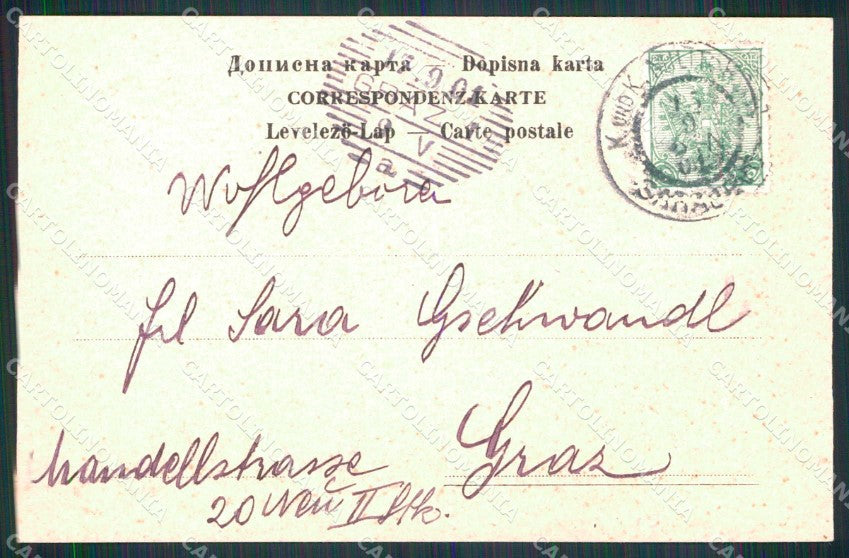 Дописна карта Dopisna karta
CORRESPONDENZ-KARTE
Levelező-Lap — Carte postale
GRAZ
K. UND K. MILIT. POST
SARAJEVO
Wohlgebora
frl Sara Gschwandl
Graz
Mandellstrasse
20 Neu II Stk.
CARTOLINOMANIA